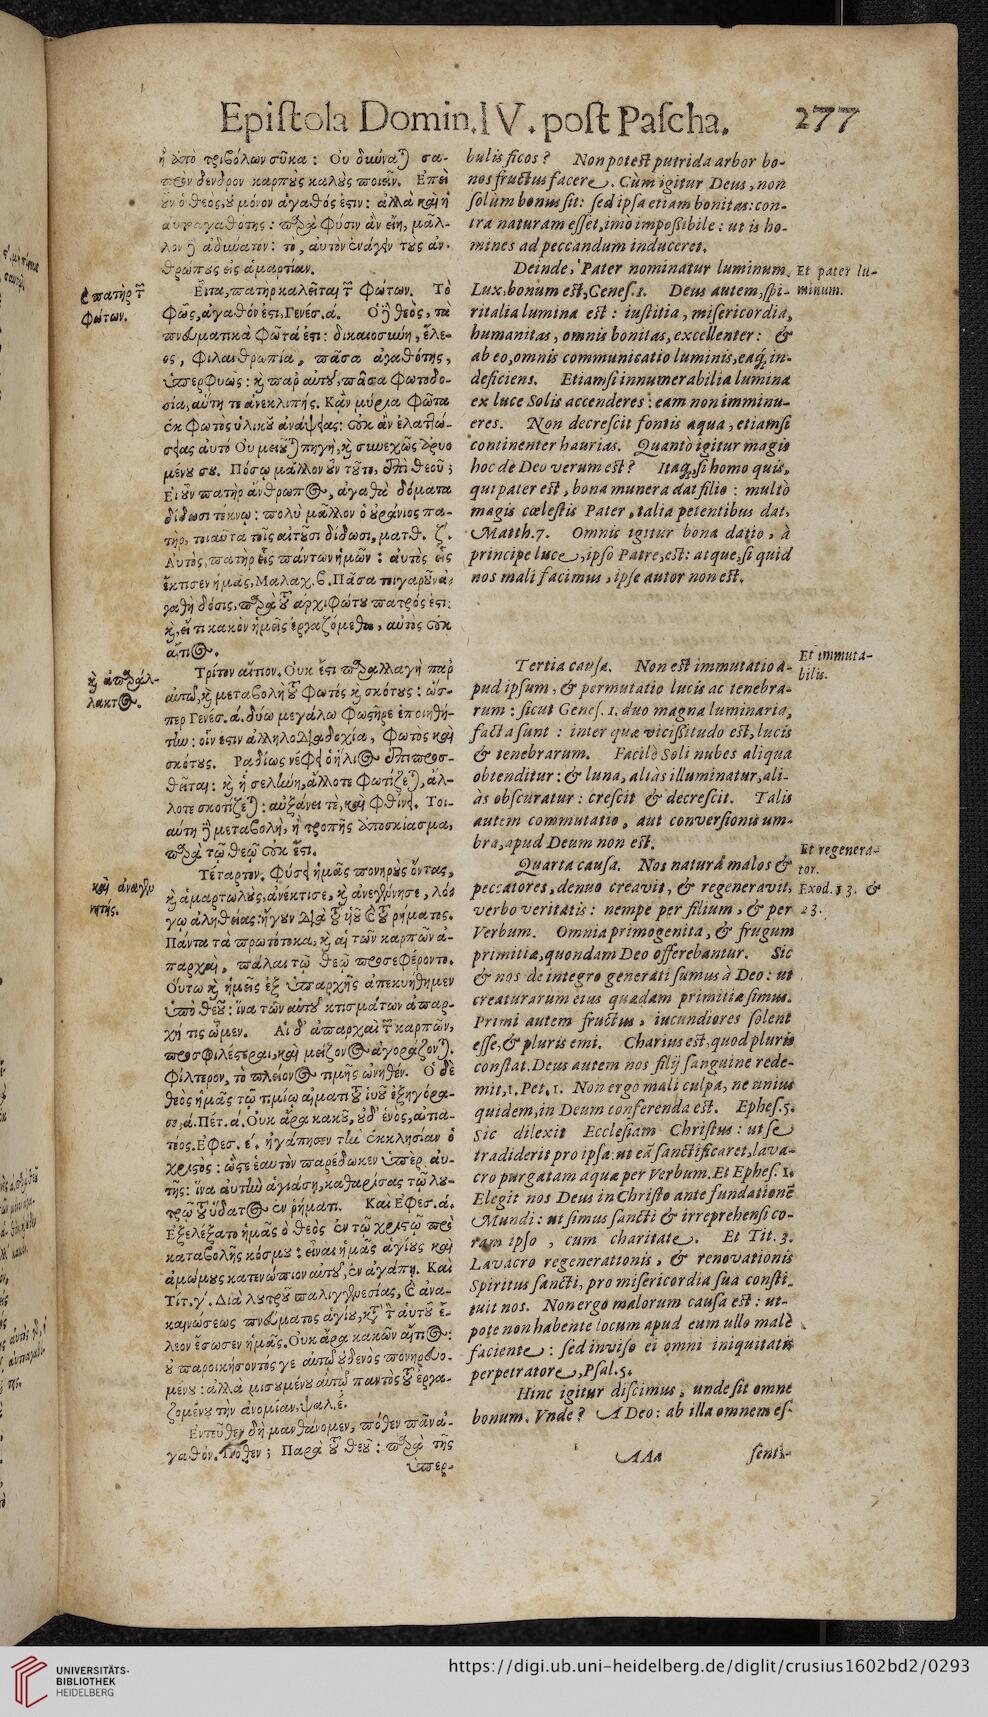 Epiſtola Domin. IV. poſt Paſcha. 277
ἢ ἀπὸ τριβόλων σῦκα: Οὐ δύναται σα-
πρὸν δένδρον καρποὺς καλοὺς ποιεῖν. Ἐπεὶ
οὖν ὁ θεὸς, οὐ μόνον ἀγαθός ἐστιν: ἀλλὰ καὶ ἡ
αὐτοαγαθότης: παρὰ φύσιν ἂν εἴη, μᾶλ-
λον δὲ ἀδύνατον: τὸ, αὐτὸν ἐνάγειν τοὺς ἀν-
θρώπους εἰς ἁμαρτίαν.
Εἶτα, πατὴρ καλεῖται τῶν φώτων. Τὸ
φῶς, ἀγαθόν ἐστι, Γενέσ. α. Ὁ δὲ θεὸς, τὰ
πνευματικὰ φῶτά ἐστι: δικαιοσύνη, ἔλε-
ος, φιλανθρωπία, πᾶσα ἀγαθότης,
ὑπερφυῶς: καὶ παρ αὐτοῦ, πᾶσα φωτοδο-
σία, αὕτη τε ἀνεκλιπής. Κἂν μύρια φῶτα
ἐκ φωτὸς ἡλικοῦ ἀνάψῃς: οὐκ ἂν ἐλαττώ-
σῃς αὐτό Οὐ μειοῦται πηγὴ, καὶ συνεχῶς ἀρυο
μένου σου. Πόσῳ μᾶλλον οὖν τοῦτο, ἐπὶ θεοῦ;
Εἰ οὖν πατὴρ ἄνθρωπος, ἀγαθὰ δόματα
δίδωσι τέκνῳ: πολὺ μᾶλλον ὁ οὐράνιος πα-
τὴρ, τοιαῦτα τοῖς αἰτοῦσι δίδωσι, ματθ. ζ.
Αὐτὸς, πατὴρ εἷς πάντων ἡμῶν: αὐτὸς εἷς
ἔκτισεν ἡμᾶς, Μαλαχ. β. Πᾶσα τοιγαροῦν ἀ-
γαθὴ δόσις, παρὰ τοῦ ἀρχιφώτου πατρός ἐστι:
καὶ, εἴ τι κακὸν ἡμεῖς ἐργαζόμεθα, αὐτὸς οὐκ
αἴτιος.
Τρίτον αἴτιον. Οὐκ ἔστι παραλλαγὴ παρ
αὐτῷ, καὶ μεταβολὴ τοῦ φωτὸς καὶ σκότους: ὥσ-
περ Γενέσ. ά. δύω μεγάλω φωστῆρε ἐποιηθή-
την: οἷν ἐστιν ἀλληλοδιαδοχία, φωτὸς καὶ
σκότους. Ῥαδίως νέφει ὁ ἥλιος ἐπιπροσ-
θεῖται: καὶ ἡ σελήνη, ἄλλοτε φωτίζεται, ἄλ-
λοτε σκοτίζεται: αὐξάνει τὲ, καὶ φθίνει. Τοι-
αύτη δὲ μεταβολὴ, ἢ τροπῆς ἀποσκίασμα,
παρὰ τῷ θεῷ οὐκ ἔστι.
Τέταρτον. Φύσει ἡμᾶς πονηροὺς ὄντας,
καὶ ἁμαρτωλοὺς, ἀνέκτισε, καὶ ἀνεγέννησε, λό-
γῳ ἀληθείας: ἤγουν διὰ τοῦ υἱοῦ καὶ τοῦ ῥήματος.
Πάντα τὰ πρωτότοκα, καὶ αἱ τῶν καρπῶν ἀ-
παρχαὶ, πάλαι τῷ θεῷ προσεφέροντο.
Οὕτω καὶ ἡμεῖς ἐξ ὑπαρχῆς ἀπεκυήθημεν
ὑπὸ θεοῦ: ἵνα τῶν αὐτοῦ κτισμάτων ἀπαρ-
χή τις ὦμεν. Αἱ δ' ἀπαρχαὶ τῶν καρπῶν,
προσφιλέστεραι, καὶ μείζονος ἀγοράζονται.
Φίλτερον, τὸ πλείονος τιμῆς ὠνηθέν. Ὁ δὲ
θεὸς ἡμᾶς τῷ τιμίῳ αἵματι τοῦ υἱοῦ ἐξηγόρα-
σε, ά. Πέτ. α. Οὐκ ἄρα κακοῦ, οὐδ' ἑνὸς, αἰτια-
τέος. Εφεσ. ε. ἠγάπησεν τὴν ἐκκλησίαν ὁ
χριστός: ὥστε ἑαυτὸν παρέδωκεν ὑπὲρ αὐ-
τῆς: ἵνα αὐτὴν ἁγιάσῃ, καθαρίσας τῷ λου-
τρῷ τοῦ ὕδατος ἐν ῥήματι. Καὶ Εφεσ. ά.
Εξελέξατο ἡμᾶς ὁ θεὸς ἐν τῷ χριστῷ πρὸ
καταβολῆς κόσμου: εἶναι ἡμᾶς ἁγίους καὶ
ἀμώμους κατενώπιον αὐτοῦ, ἐν ἀγάπῃ. Καὶ
Τίτ. γ. Διὰ λουτροῦ παλιγγενεσίας, καὶ ἀνα-
καινώσεως πνεύματος ἁγίου, κατὰ τὸν αὐτοῦ ἔ-
λεον ἔσωσεν ἡμᾶς. Οὐκ ἄρα κακῶν αἴτιος:
οὐ παροικήσοντός γε αὐτῷ οὐδενὸς πονηρευο-
μένου: ἀλλὰ μισουμένου αὐτῷ παντὸς τοῦ ἐργα-
ζομένου τὴν ἀνομίαν, ψαλ. έ.
Εντεῦθεν δὴ μανθάνομεν, πόθεν πᾶν ἀ-
γαθόν. Πόθεν; Παρὰ τοῦ θεοῦ: παρὰ τῆς
ὑπερ-
ὁ πατὴρ τῶν
φώτων.
καὶ ἀπαράλ-
λακτος.
καὶ ἀναγεν
νητής.
bulis ficos? Non poteſt putrida arbor bo-
nos fructus facere. Cùm igitur Deus, non
ſolùm bonus ſit: ſed ipſa etiam bonitas: con-
tra naturam eſſet, imò impoſsibile: ut is ho-
mines ad peccandum induceret.
Deinde, Pater nominatur luminum.
Lux, bonum eſt, Geneſ. 1. Deus autem, ſpi-
ritalia lumina eſt: iuſtitia, miſericordia,
humanitas, omnis bonitas, excellenter: &
ab eo, omnis communicatio luminis, eaq́, in-
deficiens. Etiamſi innumerabilia lumina
ex luce Solis accenderes: eam non imminu-
eres. Non decreſcit fontis aqua, etiamſi
continenter haurias. Quantò igitur magis
hoc de Deo verum eſt? Itaq́, ſi homo quis,
qui pater eſt, bona munera dat filio: multò
magis cœleſtis Pater, talia petentibus dat,
Matth. 7. Omnis igitur bona datio, à
principe luce, ipſo Patre, eſt: atque, ſi quid
nos mali facimus, ipſe autor non eſt.
Tertia cauſa. Non eſt immutatio a-
pud ipſum, & permutatio lucis ac tenebra-
rum: ſicut Geneſ. 1. duo magna luminaria,
facta ſunt: inter quæ viciſsitudo eſt, lucis
& tenebrarum. Facilè Soli nubes aliqua
obtenditur: & luna, aliàs illuminatur, ali-
às obſcuratur: creſcit & decreſcit. Talis
autem commutatio, aut converſionis um-
bra, apud Deum non eſt.
Quarta cauſa. Nos naturâ malos &
peccatores, denuo creavit, & regeneravit,
verbo veritatis: nempe per filium, & per
Verbum. Omnia primogenita, & frugum
primitiæ, quondam Deo offerebantur. Sic
& nos de integro generati ſumus à Deo: ut
creaturarum eius quædam primitiæ ſimus.
Primi autem fructus, iucundiores ſolent
eſſe, & pluris emi. Charius eſt, quod pluris
conſtat. Deus autem nos filij ſanguine rede-
mit, 1. Pet. 1. Non ergo mali culpa, ne unius
quidem, in Deum conferenda eſt. Epheſ. 5.
Sic dilexit Eccleſiam Chriſtus: ut ſe
tradiderit pro ipſa: ut eā ſanctificaret, lava-
cro purgatam aquæ per Verbum. Et Epheſ. 1.
Elegit nos Deus in Chriſto ante fundationē
Mundi: ut ſimus ſancti & irreprehenſi co-
ram ipſo, cum charitate. Et Tit. 3.
Lavacro regenerationis, & renovationis
Spiritus ſancti, pro miſericordia ſua conſti-
tuit nos. Non ergo malorum cauſa eſt: ut-
pote non habente locum apud eum ullo malè
faciente: ſed inviſo ei omni iniquitatis
perpetratore, Pſal. 5.
Hinc igitur diſcimus, unde ſit omne
bonum. Vnde? A Deo: ab illa omnem eſ-
AAa ſenti-
Et pater lu-
minum.
Et immuta-
bilis.
Et regenera-
tor.
Exod. 13. &
23.
UNIVERSITÄTS-
BIBLIOTHEK
HEIDELBERG
https://digi.ub.uni-heidelberg.de/diglit/crusius1602bd2/0293